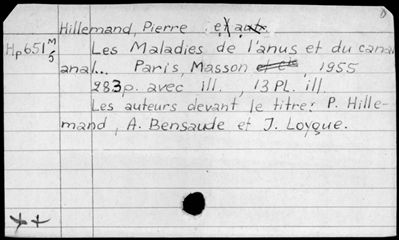 Hillemand, Pierre et autr.
Hp651 M/5
Les Maladies de l'anus et du canal
anal... Paris, Masson et Cie, 1955
283p. avec ill., 13 PL. ill.
Les auteurs devant le titre: P. Hille-
mand, A. Bensaude et J. Loygue.